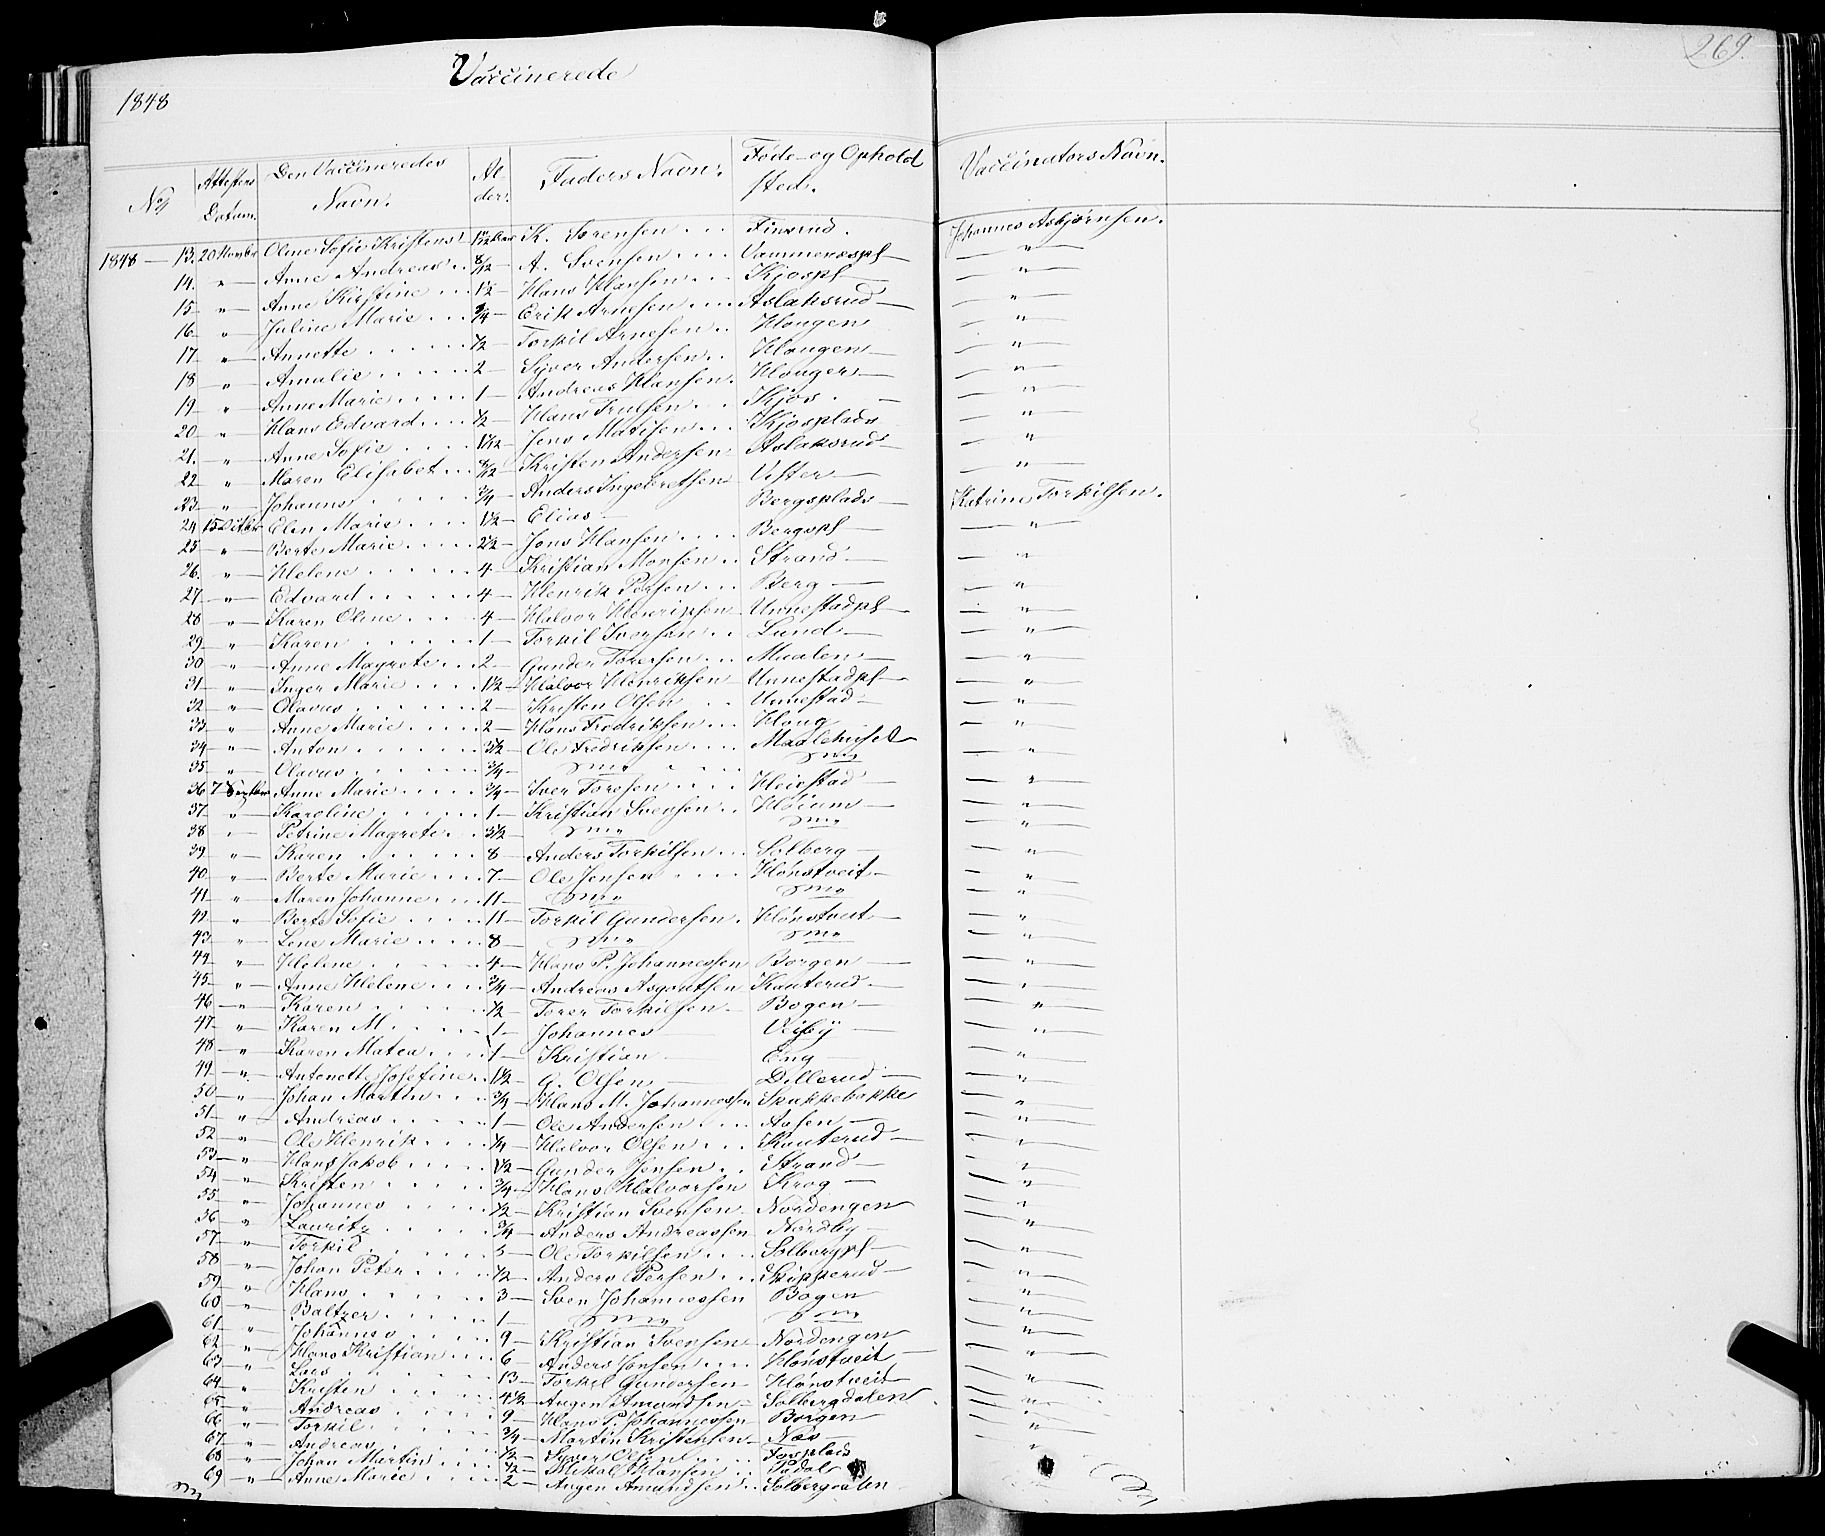 269.
Vaccinerede
1848
No Attestens Datum. Den Vaccineredes Navn. Alder. Faders Navn. Føde- og Ophold sted. Vaccinators Navn.
1848 — 13. 20 Novbr Oline Sofie Kristens K. Sørensen Finsrud. Johannes Asbjørnsen.
14. " Anne Andreas 8/12 A. Svensen "
15 " Anne Kirstine 1½ Hans Hansen Kjøspl "
16 " Juline Marie ¾ Erik Arnesen Aslaksrud "
17 " Annette ½ Torkil Arnesen Hougen "
18 " Amalie 2 Syver Andersen Hougen "
19 " Anne Marie 1 Andreas Hansen Hougen "
20 " Hans Edvard ½ Hans Trulsen Kjøs "
21. " Anne Sofie Jens Matisen Kjøsplads "
22 " Maren Elisabet Kristen Andersen Aslaksrud "
23 " Johanne ¾ Anders Ingebretsen Vister "
24 15 Elen Marie 1½ Elias Bergsplads Katrine Torkilsen.
25 " Berte Marie 2½ Jens Hansen Bergspl "
26. " Helene 4 Kristian Monsen Strand "
27 " Edvard 4 Henrik Persen Berg "
28 " Karen Oline 4 Halvor Henriksen Unnestadpl "
29 " Karen 1 Torkil Iversen Lund "
30 " Anne Magrete 2 Gunder Torersen Maalen "
31 " Inger Marie 1½ Halvor Henriksen Unnestadpl "
32 " Olavus 2 Kristen Olsen Unnestad "
33 " Anne Marie 2 Hans Fredriksen Houg "
34 " Anton 3½ Ole Fredriksen Maalehuset "
35 " Olavus ¾ Dmo Dmo "
36 7 Anne Marie ¾ Iver Toresen Heiestad "
37 " Karoline 1 Kristian Svensen Høium "
38 " Petrine Magrete 3½ Dmo Dmo "
39 " Karen 8 Anders Torkilsen Solberg "
40 " Berte Marie 7 Ole Jensen Hønstveit "
41 " Maren Johanne 11 Dmo Dmo "
42 " Berte Sofie 11 Torkil Gundersen Hønstveit "
43 " Lene Marie 8 Dmo Dmo "
44 " Helene 4 Hans P. Johannessen Borgen "
45 " Anne Helene ¾ Andreas Asgoutsen Kauterud "
46 " Karen ½ Torer Torkilsen Bogen "
47 " Karen M. 1 Johannes Veiby "
48 " Karen Matea 1 Kristian Eng "
49 " Antonette Josefine 1½ G. Olsen Dillerud "
50 " Johan Martin ¾ Hans M. Johannessen Skakkebakke "
51 " Andreas 1 Ole Andersen Aasen "
52 " Ole Henrik ¼ Halvor Olsen Kauterud "
53 " Hans Jakob 1½ Gunder Jensen Strand "
54 " Kristen ¾ Hans Halvorsen Krog "
55 " Johannes ½ Kristian Svensen Nordengen "
56 " Lauritz ¾ Anders Andreassen Nordby "
57 " Torkil 5 Ole Torkilsen Solbergpl "
58 " Johan Peter ½ Anders Persen Skipperud "
59 " Hans 3 Sven Johannessen Bogen "
60 " Baltzer 1 Dmo Dmo "
61 " Johannes 9 Kristian Svensen Nordengen "
62 " Hans Kristian 6 Anders Jensen Hønstveit "
63 " Lars 13 Torkil Gundersen Hønstveit "
64 " Kristen 4½ Augen Amundsen Solbergdalen "
65 " Andreas 9 Hans P. Johannessen Borgen "
66 " Torkil ¾ Martin Kristensen Næs "
67 " Andreas ½ Syver Olsen "
68 " Johan Martin ½ Mikal Hansen
69 " Anne Marie 2 Augen Amundsen Solbergdalen